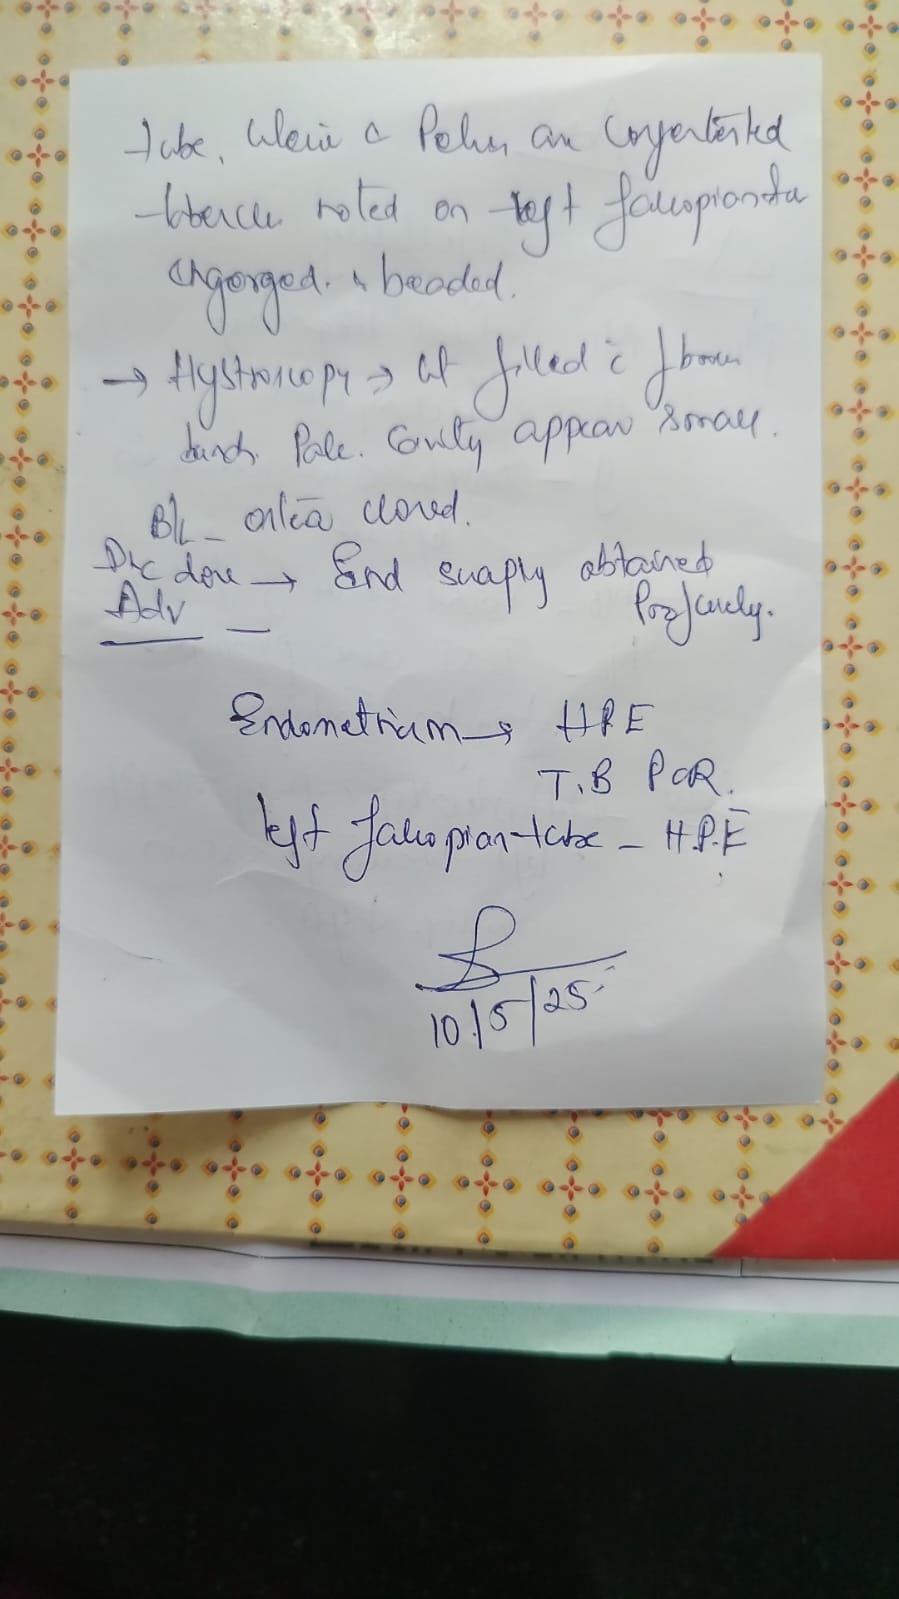 tube, Uterine & Pelvis are Congested
tubercle noted on left fallopian tu
engorged. & beaded.
→ Hystroscopy → filled c̄ fibrous
bands. Pale. Cavity appear small.
B/L - ostia closed.
D&C done → End sampling obtained
Adv - Profusely.
Endometrium → HPE
T.B PCR.
left fallopian tube - H.P.E
10/5/25